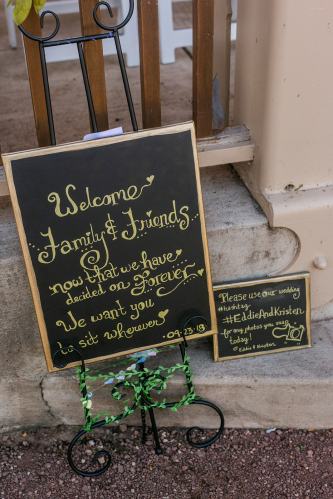 Welcome
Family & Friends
now that we have
decided on forever
We want you
to sit wherever
09.23.18
Please use our wedding
#hashtag
#EddieAndKristen
for any photos you snap
today!
© Eddie & Kristen